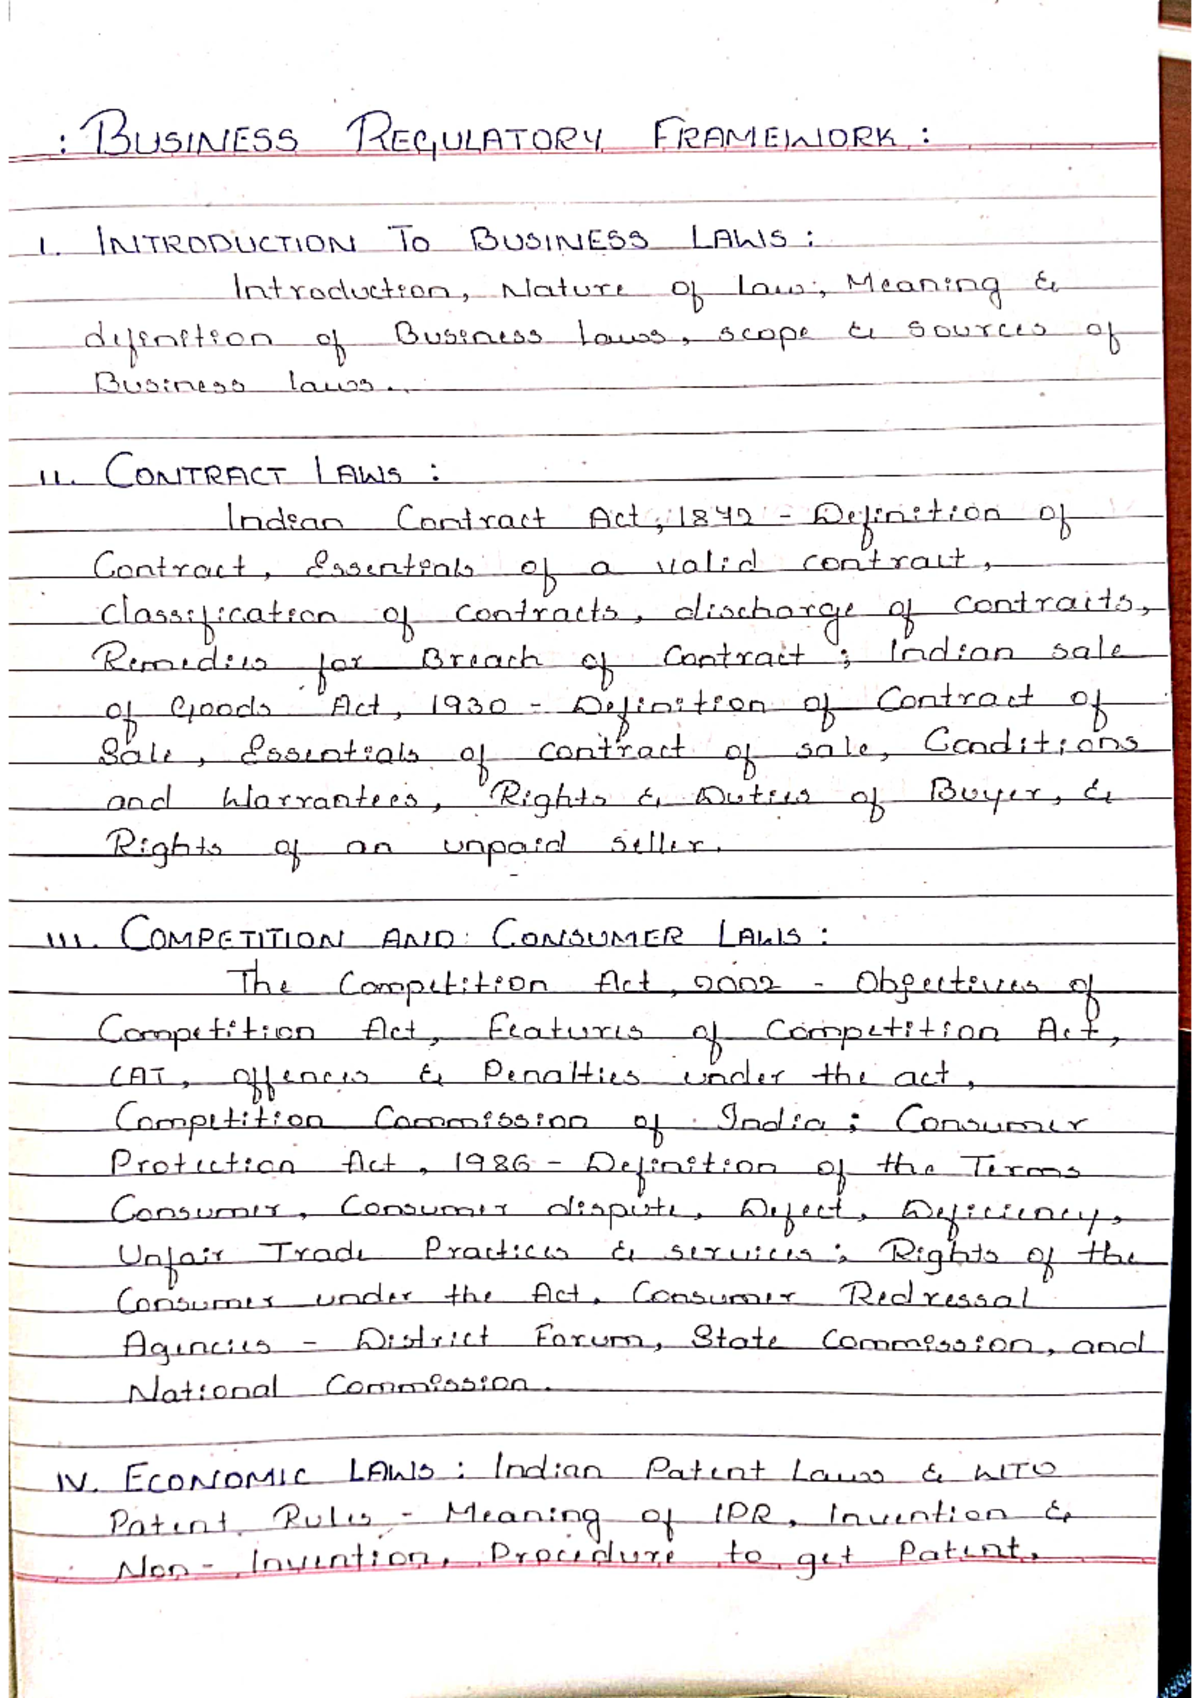 : BUSINESS REGULATORY FRAMEWORK :
I. INTRODUCTION TO BUSINESS LAWS :
Introduction, Nature of law, Meaning &
definition of Business laws, scope & sources of
Business laws.
II. CONTRACT LAWS :
Indian Contract Act, 1872 - Definition of
Contract, Essentials of a valid contract,
classification of contracts, discharge of contracts,
Remedies for Breach of Contract ; Indian sale
of Goods Act, 1930 - Definition of Contract of
Sale, Essentials of contract of sale, Conditions
and Warrantees, Rights & Duties of Buyer, &
Rights of an unpaid seller.
III. COMPETITION AND CONSUMER LAWS :
The Competition Act, 2002 - Objectives of
Competition Act, Features of Competition Act,
CAT, offences & Penalties under the act,
Competition Commission of India ; Consumer
Protection Act, 1986 - Definition of the Terms
Consumer, Consumer dispute, Defect, Deficiency,
Unfair Trade Practices & services ; Rights of the
Consumer under the Act, Consumer Redressal
Agencies - District Forum, State Commission, and
National Commission.
IV. ECONOMIC LAWS : Indian Patent Laws & WTO
Patent Rules - Meaning of IPR, Invention &
Non - Invention, Procedure to get Patent,